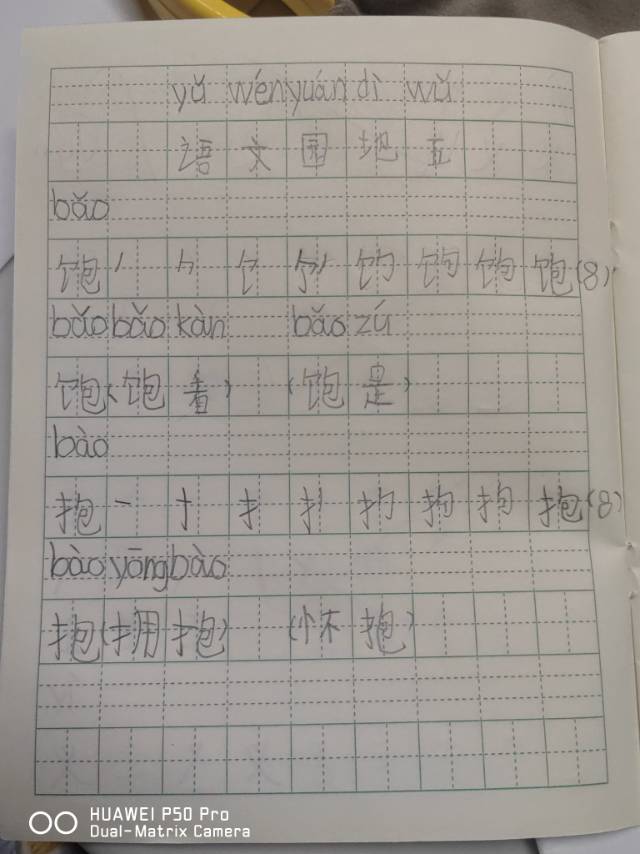 yǔ wényuán dì wǔ
语文园地五
bǎo
饱 丿 𠂊 饣 饣丿 饣勹 饱 饱 饱(8)
bǎo bǎo kàn bǎo zú
饱(饱着) (饱是)
bào
抱 一 扌 扌 扌丿 扌勹 抱 抱 抱(8)
bào yōng bào
抱(拥抱) (怀抱)
HUAWEI P50 Pro
Dual-Matrix Camera